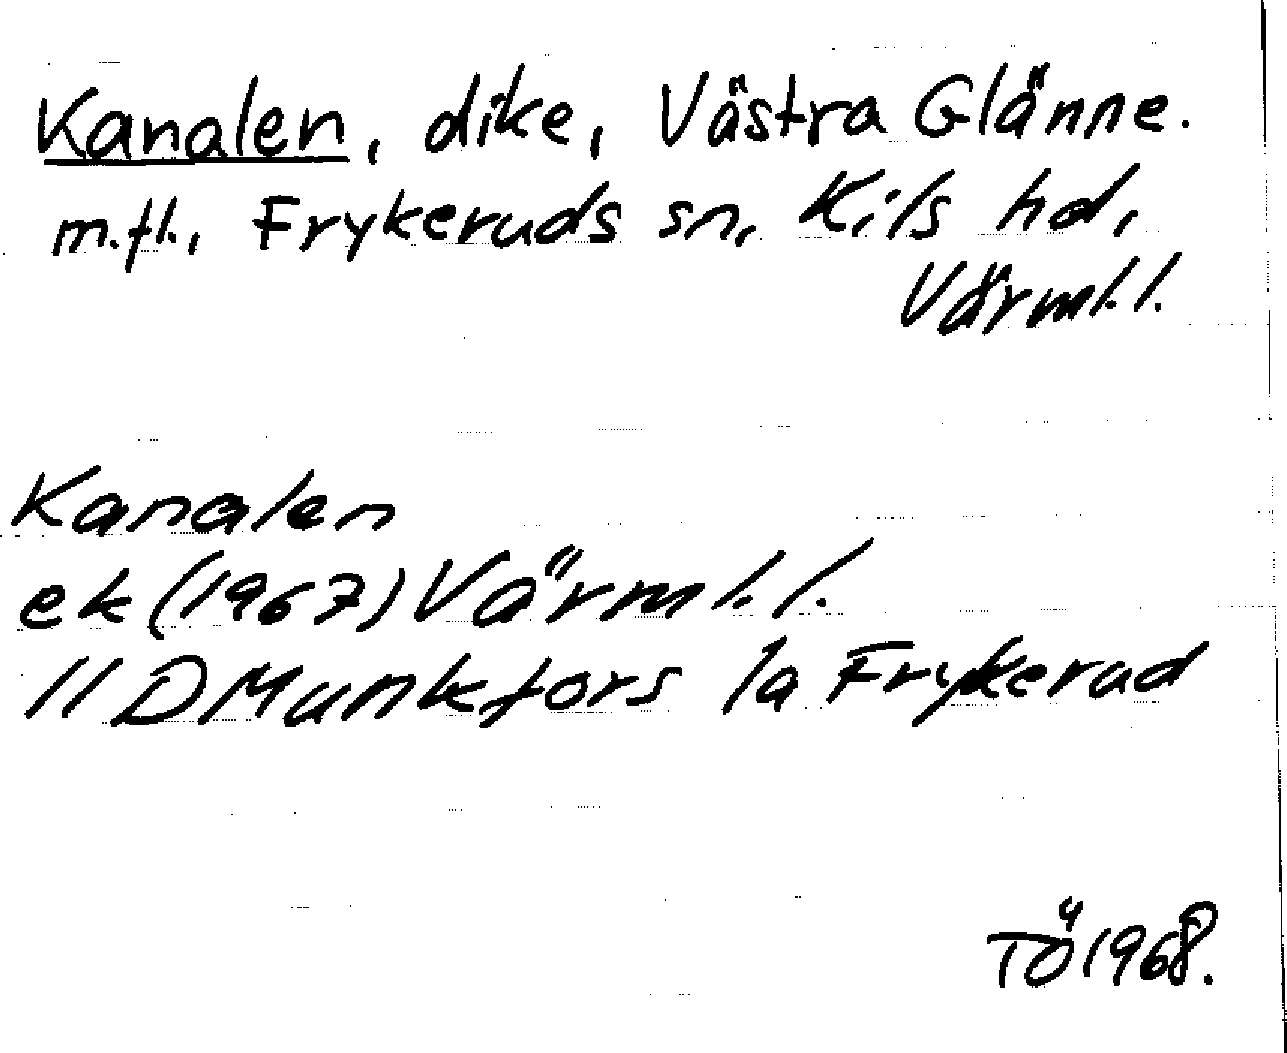 Kanalen, dike, Västra Glänne.
m.fl., Frykeruds sn, Kils hd,
Värml.l.
Kanalen
ek (1967) Värml.l.
11D Munkfors 1a Frykerud
TÖ 1968.